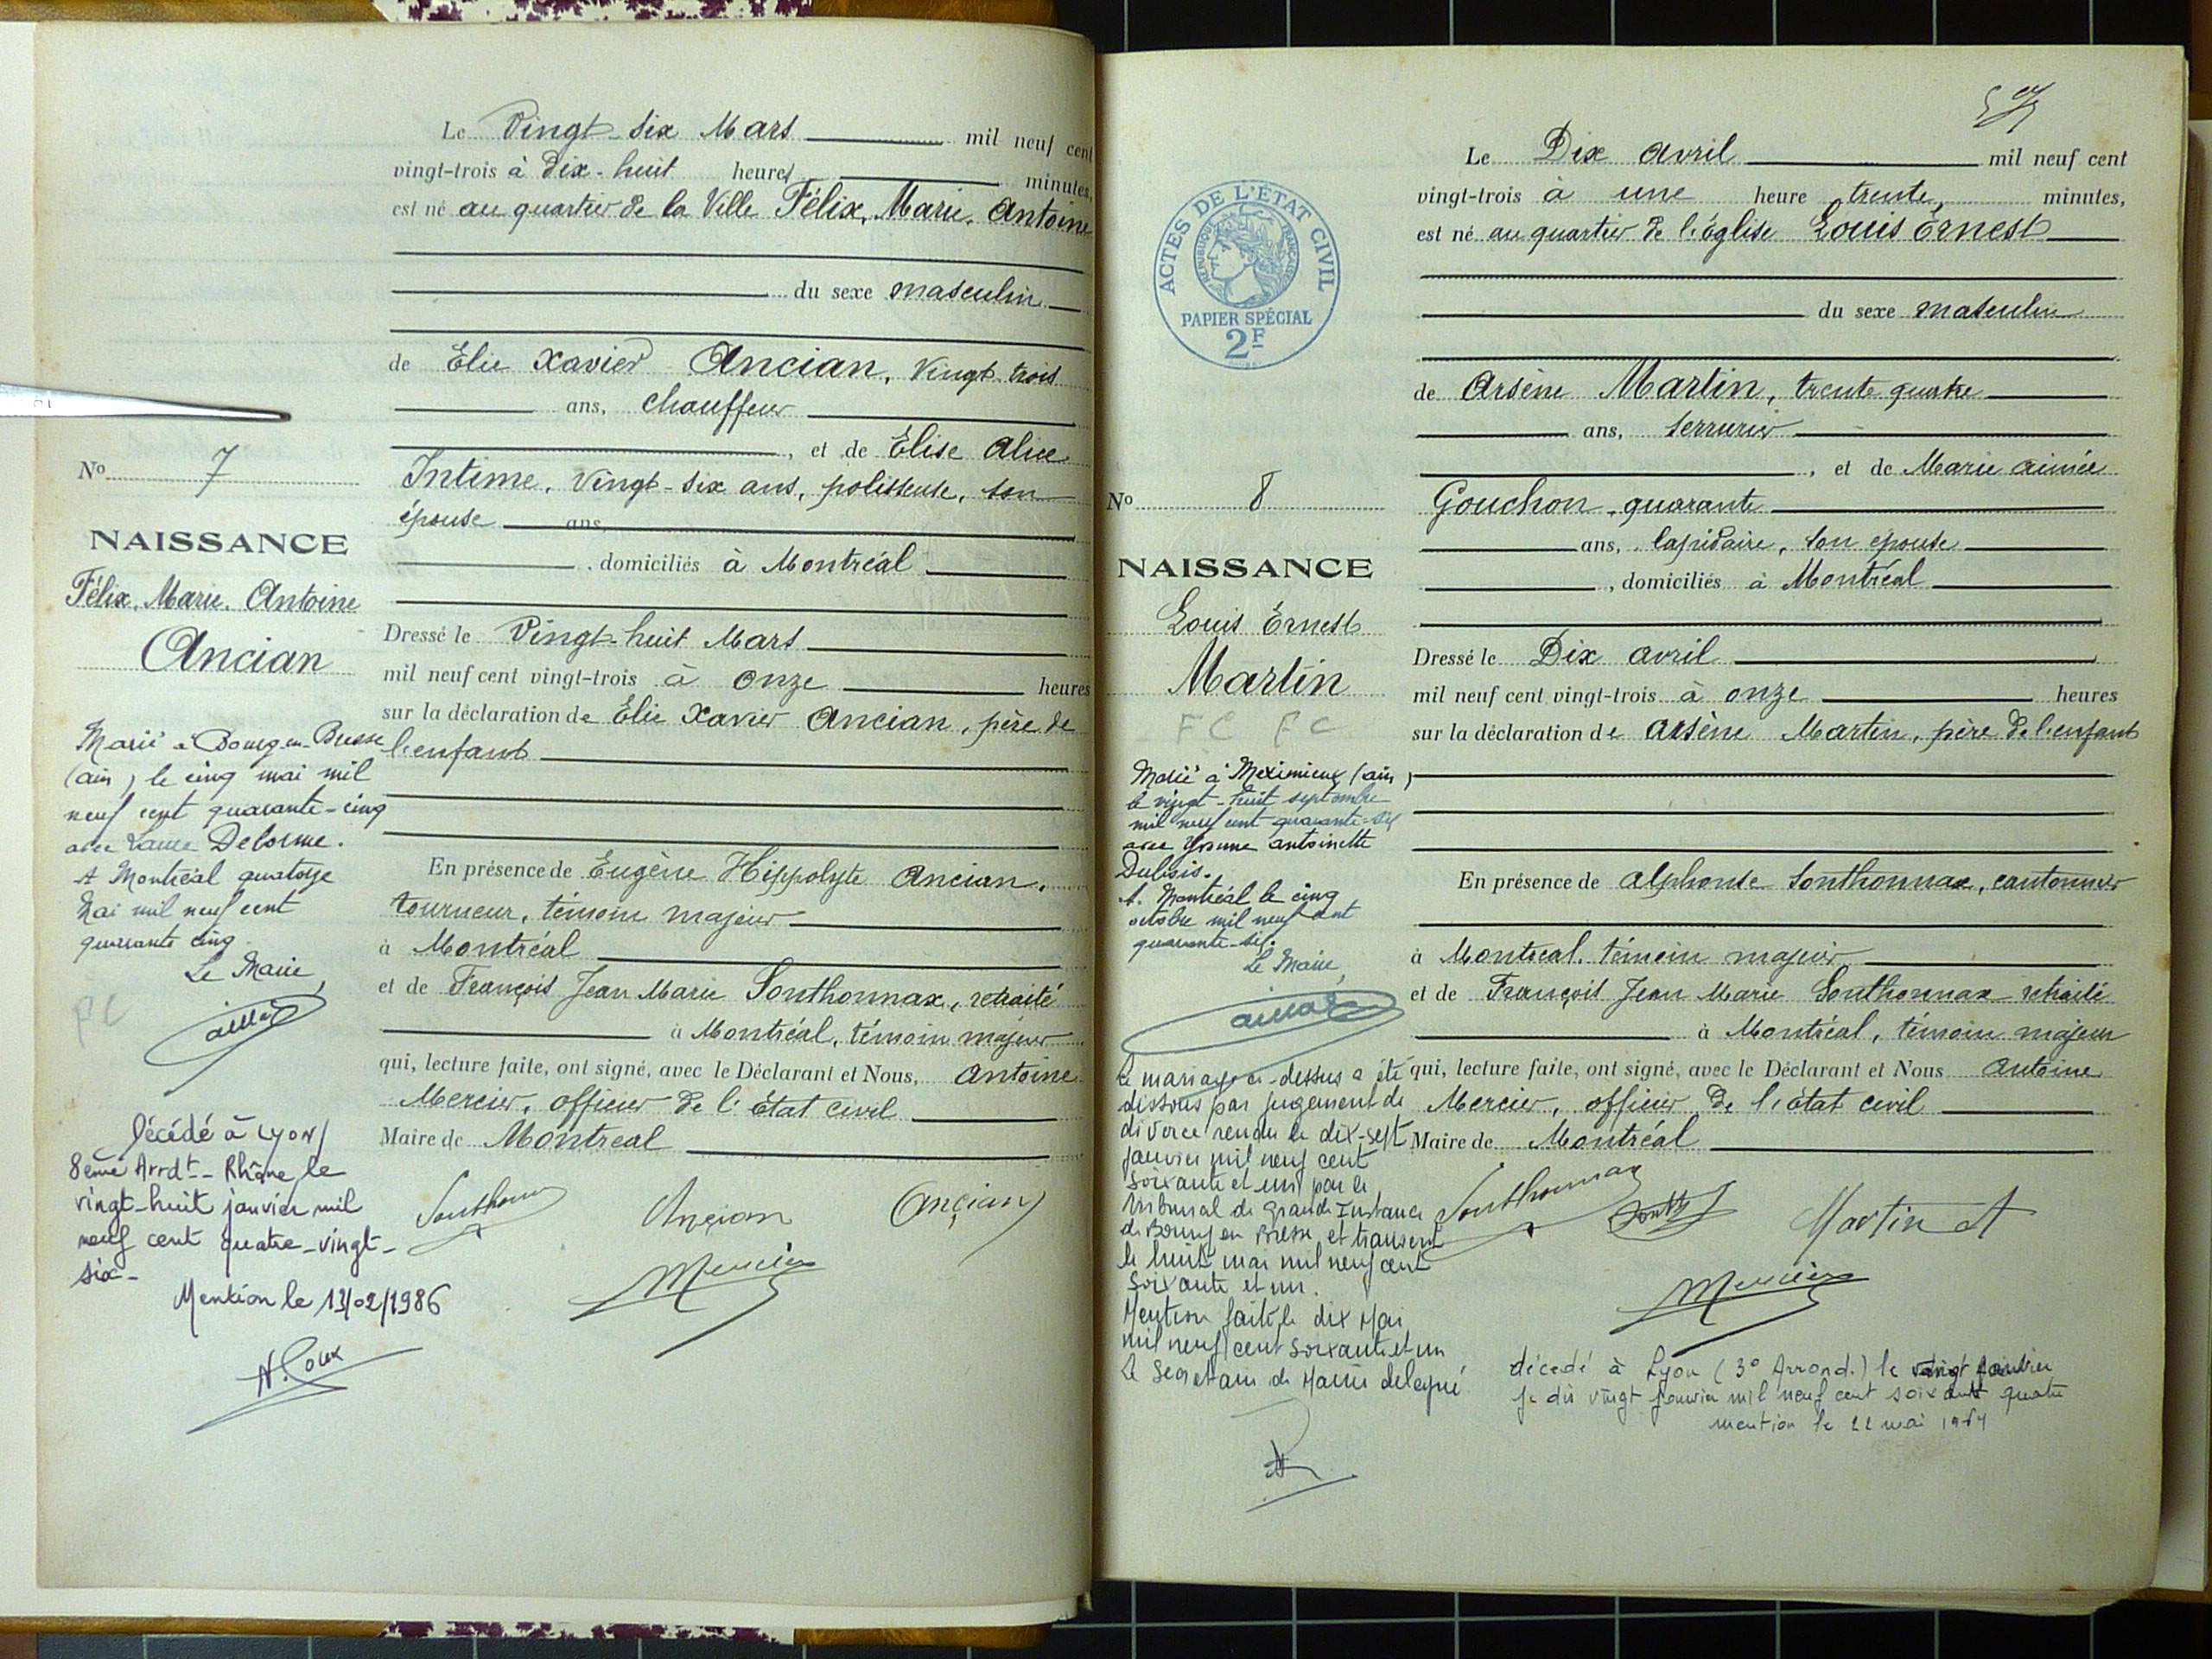 Le Vingt-six Mars mil neuf cent
vingt-trois à Dix-huit heures minutes,
est né au quartier de la Ville Félix, Marie, Antoine
du sexe masculin
de Elie Xavier Ancian, Vingt trois
ans, chauffeur
, et de Elise Alice
Intime, Vingt-six ans, polisseuse, son
épouse ans,
, domiciliés à Montréal
Dressé le Vingt-huit Mars
mil neuf cent vingt-trois à onze heures
sur la déclaration de Elie Xavier Ancian, père de
l'enfant
En présence de Eugène Hippolyte Ancian,
tourneur, témoin majeur
à Montréal
et de François Jean Marie Sonthonnax, retraité
à Montréal, témoin majeur
qui, lecture faite, ont signé, avec le Déclarant et Nous, Antoine
Mercier, officier de l'état civil
Maire de Montréal
Ançian Ançian
Mercier
No 7
NAISSANCE
Félix, Marie, Antoine
Ancian
Marié à Bourg en Bresse
(ain) le cinq mai mil
neuf cent quarante-cinq
avec Laure Delorme.
A Montréal quatorze
Mai mil neuf cent
quarante cinq
Le Maire,
FC
Décédé à Lyon
8eme Arrdt - Rhône, le
vingt-huit janvier mil
neuf cent quatre-vingt-
six-
Mention le 13/02/1986
Le Dix avril mil neuf cent
vingt-trois à une heure trente, minutes,
est né au quartier de l'église Louis Ernest
du sexe masculin
de Arsène Martin, trente quatre
ans, serrurier
, et de Marie aimée
Gouchon, quarante
ans, lapidaire, son épouse
, domiciliés à Montréal
Dressé le Dix avril
mil neuf cent vingt-trois à onze heures
sur la déclaration de Arsène Martin, père de l'enfant
En présence de Alphonse Sonthonnax, cantonnier
à Montréal, témoin majeur
et de François Jean Marie Sonthonnax retraité
à Montréal, témoin majeur
qui, lecture faite, ont signé, avec le Déclarant et Nous Antoine
Mercier, officier de l'état civil
Maire de Montréal
Sonthonnax Martin A
Mercier
décédé à Lyon (3° Arrond.) le vingt janvier
je dis vingt janvier mil neuf cent soixante quatre
mention le 22 mai 1964
ACTES DE L'ÉTAT CIVIL
RÉPUBLIQUE FRANÇAISE
PAPIER SPÉCIAL
2F
No 8
NAISSANCE
Louis Ernest
Martin
FC FC
Marié à Meximieux (ain)
le vingt-huit septembre
mil neuf cent quarante-six
avec Yvonne Antoinette
Dubois.
A Montréal le cinq
octobre mil neuf cent
quarante-six.
Le Maire,
Le mariage ci-dessus a été
dissous par jugement de
divorce rendu le dix-sept
janvier mil neuf cent
soixante et un par le
Tribunal de Grande Instance
de Bourg en Bresse et transcrit
le huit mai mil neuf cent
soixante et un.
Mention faite le dix Mai
mil neuf cent soixante et un
Le Secrétaire de Mairie délégué